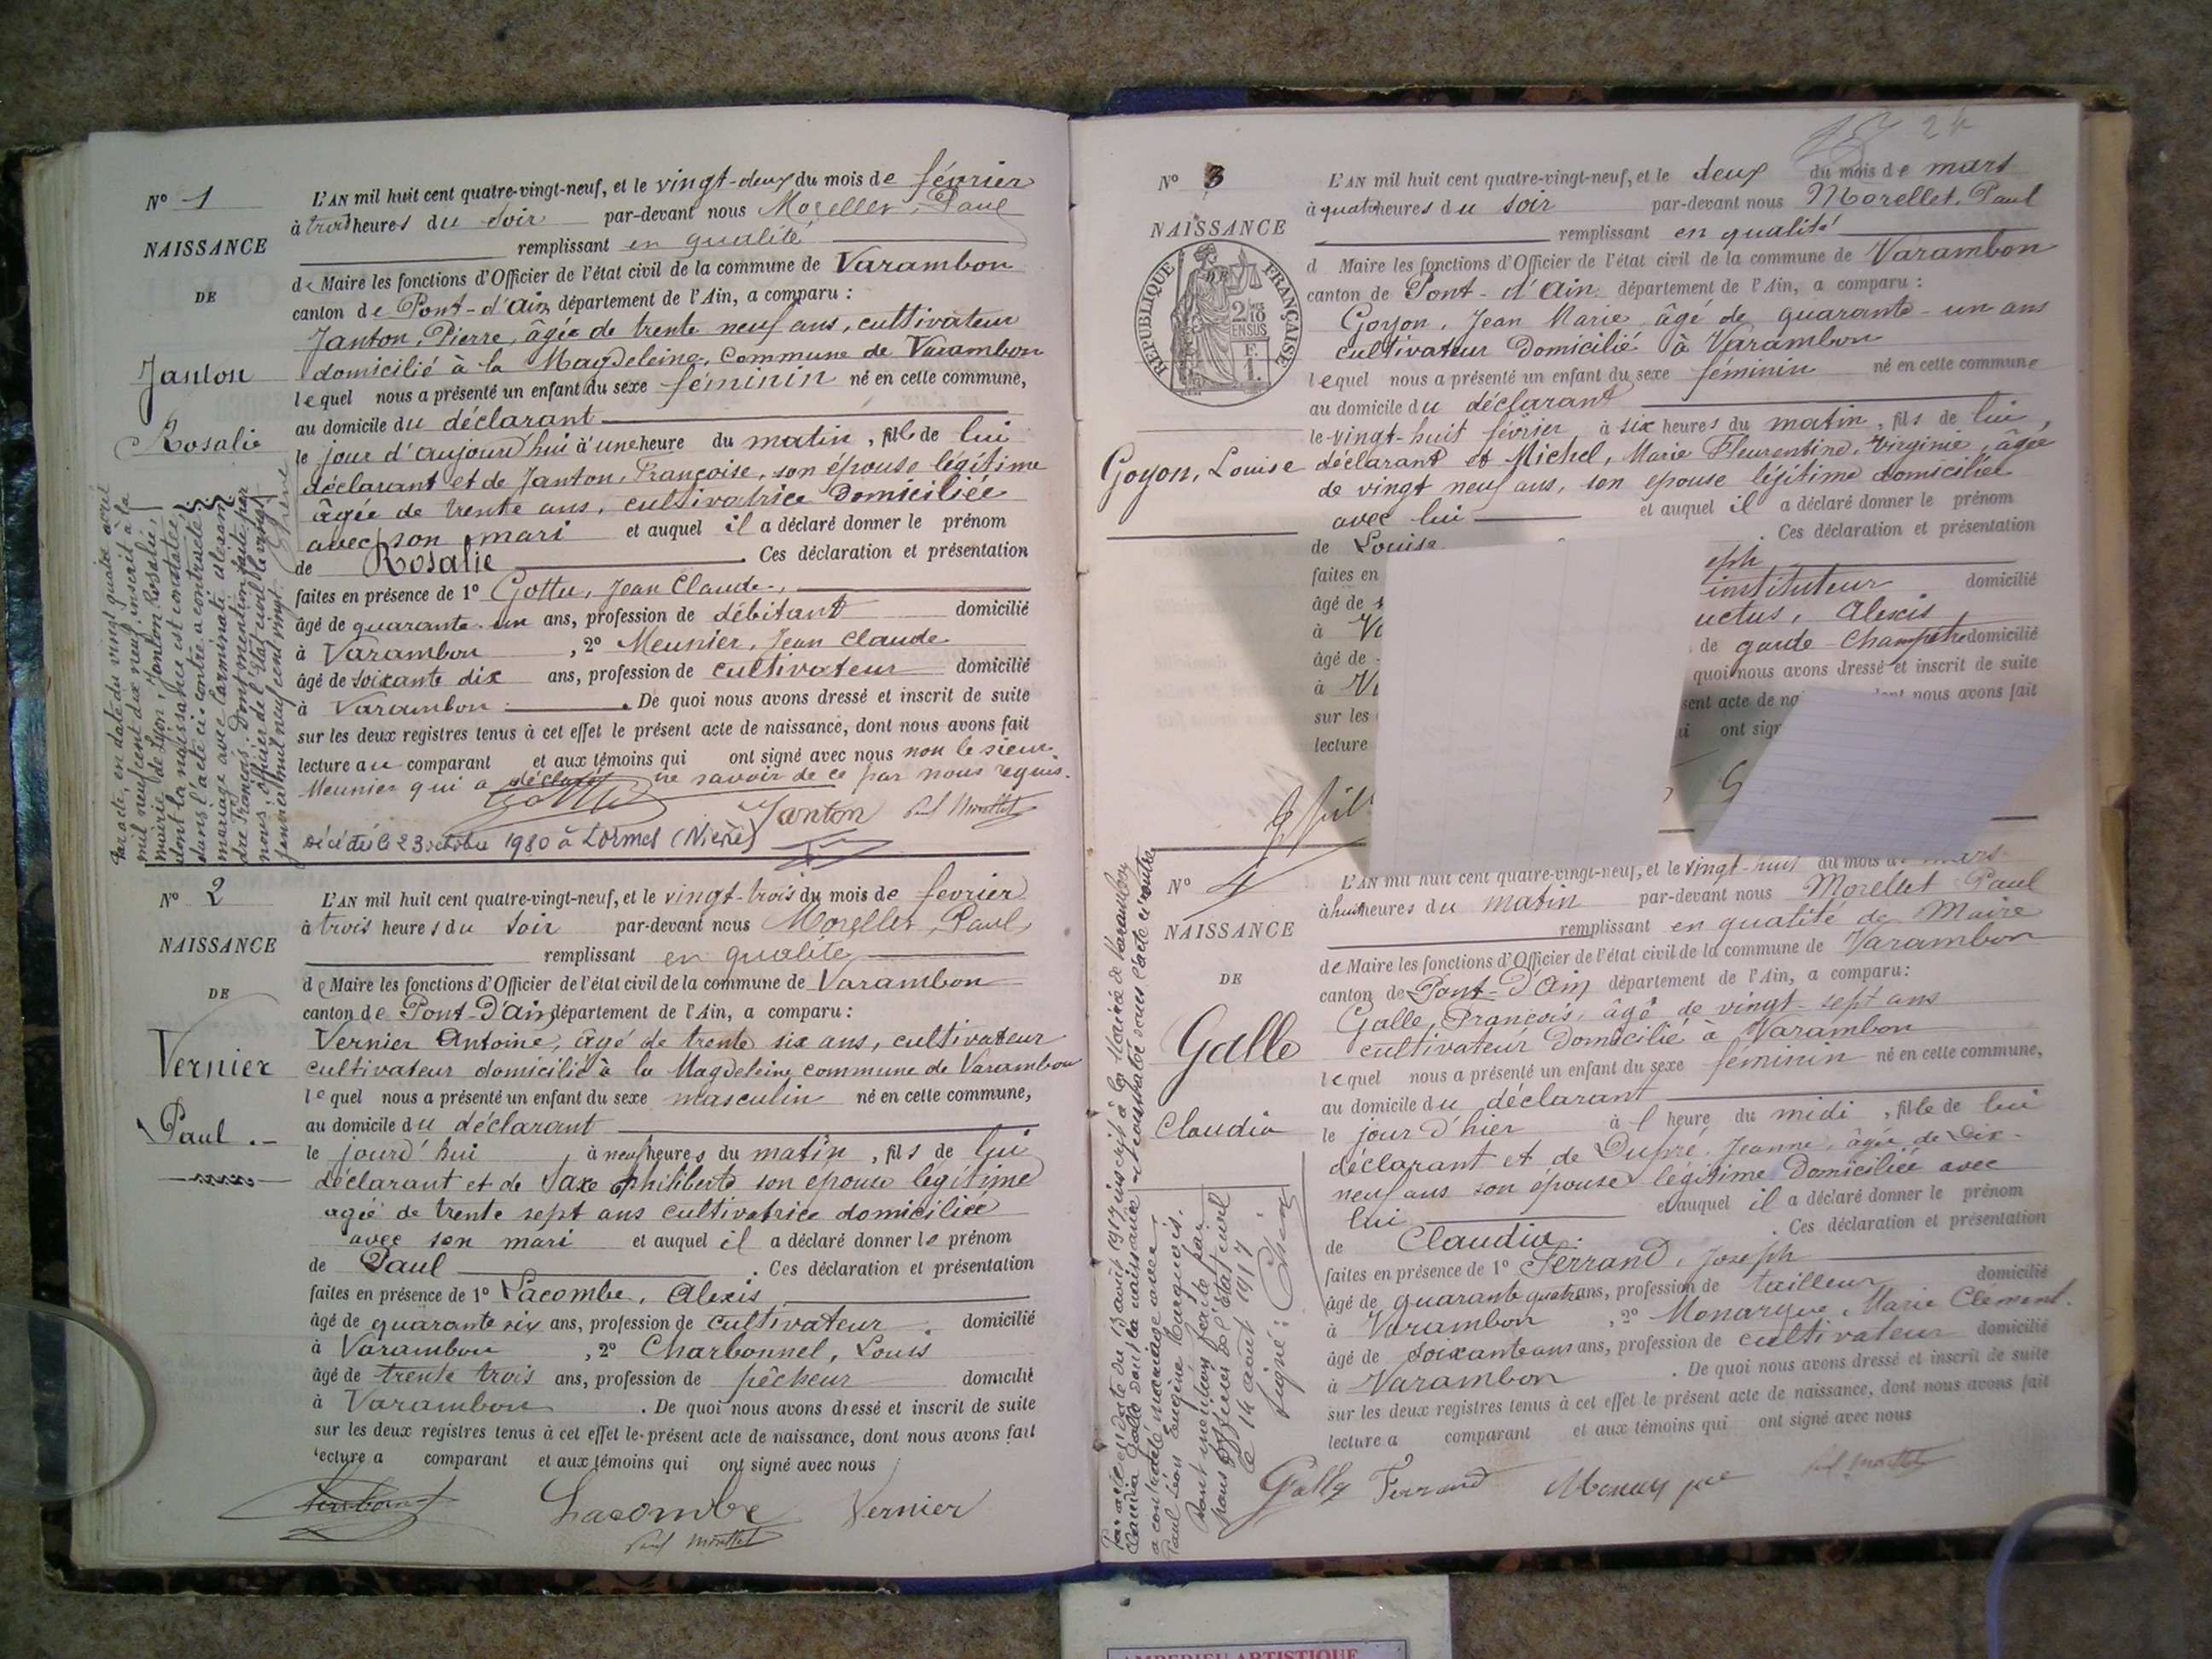 N° 1
NAISSANCE
DE
Janton
Rosalie
L'AN mil huit cent quatre-vingt-neuf, et le vingt-deux du mois de février
à trois heures du soir par-devant nous Morellet, Paul
remplissant en qualité
de Maire les fonctions d'Officier de l'état civil de la commune de Varambon
canton de Pont-d'Ain département de l'Ain, a comparu :
Janton, Pierre, âgée de trente neuf ans, cultivateur
domicilié à la Magdeleine, commune de Varambon
lequel nous a présenté un enfant du sexe féminin né en cette commune,
au domicile du déclarant
le jour d'aujourd'hui à une heure du matin, fille de lui
déclarant et de Janton, Françoise, son épouse légitime
âgée de trente ans, cultivatrice Domiciliée
avec son mari et auquel il a déclaré donner le prénom
de Rosalie . Ces déclaration et présentation
faites en présence de 1° Gottu, Jean Claude,
âgé de quarante un ans, profession de débitant domicilié
à Varambon , 2° Meunier, Jean Claude
âgé de soixante dix ans, profession de cultivateur domicilié
à Varambon . De quoi nous avons dressé et inscrit de suite
sur les deux registres tenus à cet effet le présent acte de naissance, dont nous avons fait
lecture au comparant et aux témoins qui ont signé avec nous non le sieur
Meunier qui a déclaré ne savoir de ce par nous requis.
Janton Paul Morellet
Décédée le 23 octobre 1980 à Lormes (Nièvre)
Par acte, en date du vingt quatre avril
mil neuf cent dix neuf, inscrit à la
mairie de Lyon, Janton Rosalie,
dont la naissance est constatée
dans l'acte ci-contre a contracté
mariage avec
nous, officier de l'état civil le vingt
janvier mil neuf cent vingt.
N° 2
NAISSANCE
DE
Vernier
Paul .-
L'AN mil huit cent quatre-vingt-neuf, et le vingt-trois du mois de fevrier
à trois heures du soir par-devant nous Morellet, Paul,
remplissant en qualité
de Maire les fonctions d'Officier de l'état civil de la commune de Varambon
canton de Pont-D'Ain département de l'Ain, a comparu :
Vernier Antoine, âgé de trente six ans, cultivateur
cultivateur domicilié à la Magdeleine commune de Varambon
lequel nous a présenté un enfant du sexe masculin né en cette commune,
au domicile du déclarant
le jourd'hui , à neuf heures du matin, fils de lui
déclarant et de Saxe Philiberte son épouse légitime
agée de trente sept ans cultivatrice domiciliée
avec son mari et auquel il a déclaré donner le prénom
de Paul . Ces déclaration et présentation
faites en présence de 1° Lacombe, Alexis
âgé de quarante six ans, profession de cultivateur . domicilié
à Varambon , 2° Charbonnel, Louis
âgé de trente trois ans, profession de pêcheur domicilié
à Varambon . De quoi nous avons dressé et inscrit de suite
sur les deux registres tenus à cet effet le présent acte de naissance, dont nous avons fait
lecture a comparant et aux témoins qui ont signé avec nous
Lacombe Vernier
Paul Morellet
24
N° 3
NAISSANCE
RÉPUBLIQUE FRANÇAISE
2/10 EN SUS
F. 1.
Goyon, Louise
L'AN mil huit cent quatre-vingt-neuf, et le deux du mois de mars
à quatre heures du soir par-devant nous Morellet, Paul
remplissant en qualité
d Maire les fonctions d'Officier de l'état civil de la commune de Varambon
canton de Pont-d'Ain département de l'Ain, a comparu :
Goyon, Jean Marie, âgé de quarante-un ans
cultivateur Domicilié à Varambon
lequel nous a présenté un enfant du sexe féminin né en cette commune
au domicile du déclarant
le vingt-huit février à six heures du matin, fils de lui,
déclarant et Michel, Marie Fleurentine, Virginie, âgée
de vingt neuf ans, son epouse légitime domiciliée
avec lui et auquel il a déclaré donner le prénom
de Louise . Ces déclaration et présentation
faites en eph
âgé de instituteur domicilié
à Va uctus, Alexis
âgé de de garde-Champêtre domicilié
à Va quoi nous avons dressé et inscrit de suite
sur les sent acte de na dont nous avons fait
lecture ont sign
N° 4
NAISSANCE
DE
Galle
Claudia
L'AN mil huit cent quatre-vingt-neuf, et le vingt-huit du mois de mars
à huit heures du matin par-devant nous Morellet Paul
remplissant en qualité de Maire
de Maire les fonctions d'Officier de l'état civil de la commune de Varambon
canton de Pont-D'Ain département de l'Ain, a comparu :
Galle, François, âgé de vingt-sept ans
cultivateur Domicilié à Varambon
lequel nous a présenté un enfant du sexe féminin né en cette commune,
au domicile du déclarant
le jour d'hier à 1 heure du midi, fille de lui
déclarant et de Dupré, Jeanne, âgée de dix-
neuf ans son épouse légitime Domiciliée avec
lui et auquel il a déclaré donner le prénom
de Claudia . Ces déclaration et présentation
faites en présence de 1° Ferrand, Joseph
âgé de quarante quatre ans, profession de tailleur domicilié
à Varambon , 2° Monarque, Marie Clément.
âgé de soixante ans ans, profession de cultivateur domicilié
à Varambon . De quoi nous avons dressé et inscrit de suite
sur les deux registres tenus à cet effet le présent acte de naissance, dont nous avons fait
lecture a comparant et aux témoins qui ont signé avec nous
Galle Ferrand Monarque Paul Morellet
Par acte en date du 13 août 1917 inscrit à la Mairie de Varambon
Claudia Galle dont la naissance est constatée dans l'acte ci-contre
a contracté mariage avec
Paul Léon Eugène Marquois.
Dont mention faite par
nous officier de l'état civil
le 14 août 1917
Signé :
AMBERIEU ARTISTIQUE